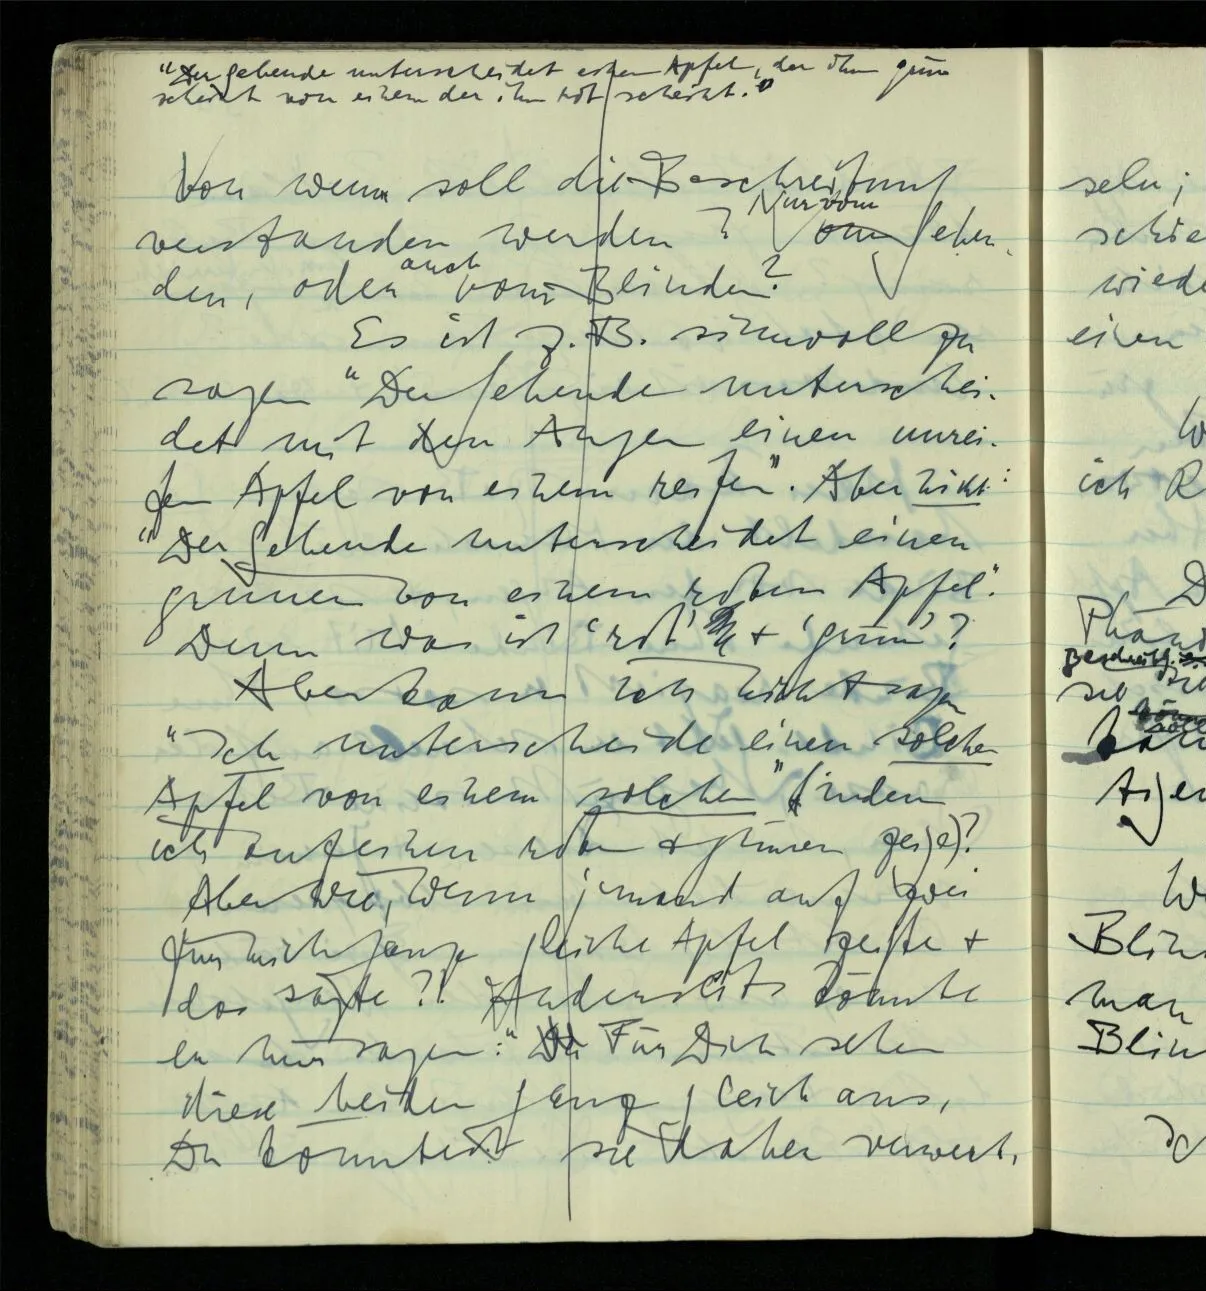 "Der Sehende unterscheidet einen Apfel, der ihm grün
scheint von einem der ihm rot scheint."
Von wem soll die Beschreibung
Nur vom
verstanden werden? Vom Sehen-
auch
den, oder vom Blinden?
Es ist z.B. sinnvoll zu
sagen "Der Sehende unterschei-
det mit den Augen einen unrei-
fen Apfel von einem reifen". Aber nicht:
"Der Sehende unterscheidet einen
grünen von einem roten Apfel".
Denn was ist 'rot' + 'grün'?
Aber kann ich nicht sagen
"Ich unterscheide einen solchen
Apfel von einem solchen" (indem
ich auf einen roten + grünen zeige)?
Aber wie, wenn jemand auf zwei
für mich ganz gleiche Äpfel zeigte +
das sagte?! Anderseits könnte
er mir sagen: "Für Dich sehen
diese beiden ganz gleich aus,
Du könntest sie daher verwech-
seln;
schie
wiede
einen
W
ich R
D
Phän
sie
W
Blin
man
Blin